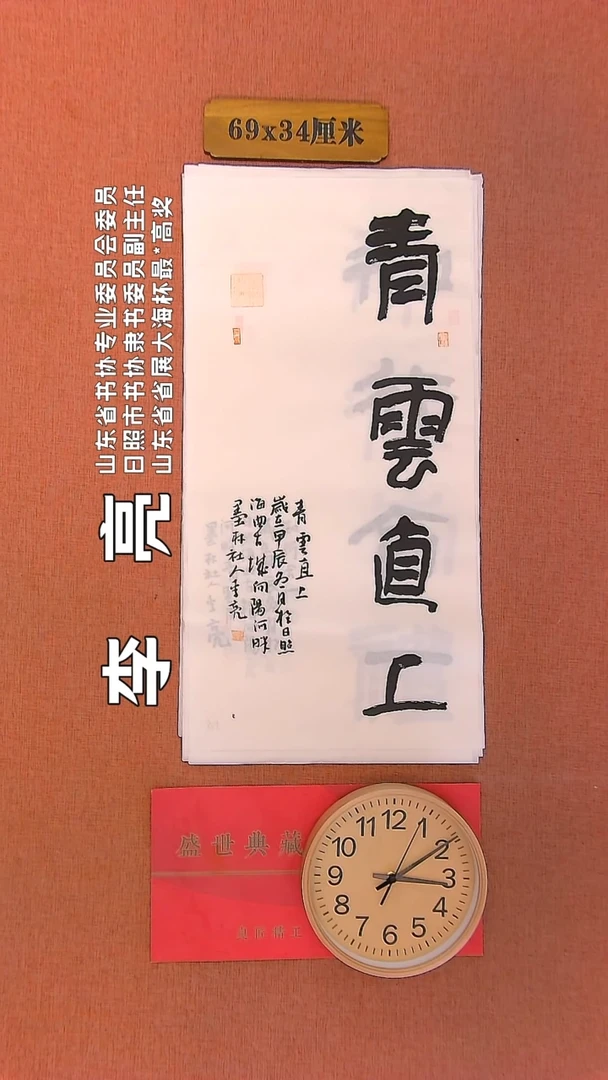 69x34厘米
青雲直上
青雲直上
歲在甲辰冬月於日照
海曲古城向陽河畔
墨林社人李亮
山东省书协专业委员会委员
日照市书协隶书委员副主任
山东省省展大海杯最*高奖
李 亮
盛世典藏
12
1
2
3
4
5
6
7
8
9
10
11